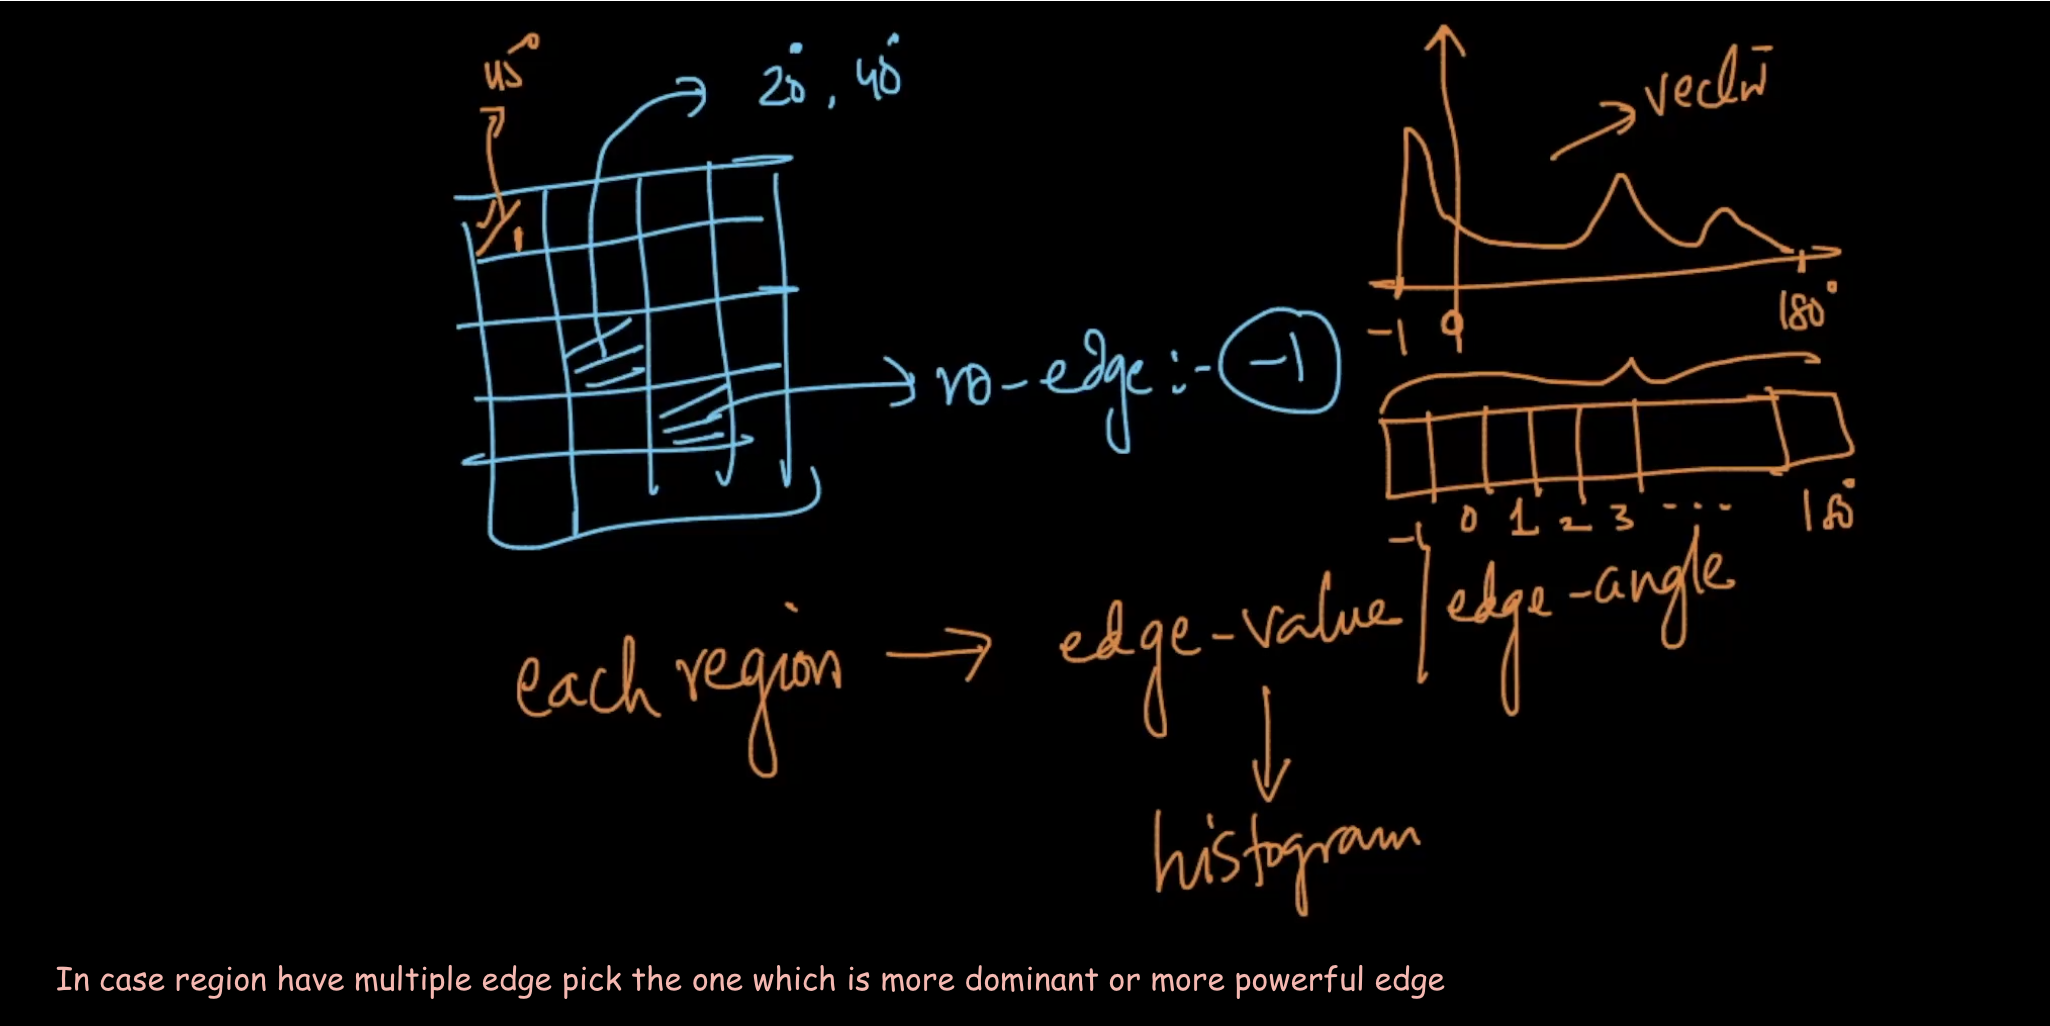 45°
20°, 40°
vector
no-edge :- -1
-1 0 180°
-1 0 1 2 3 ... 180°
each region → edge-value / edge-angle
histogram
In case region have multiple edge pick the one which is more dominant or more powerful edge